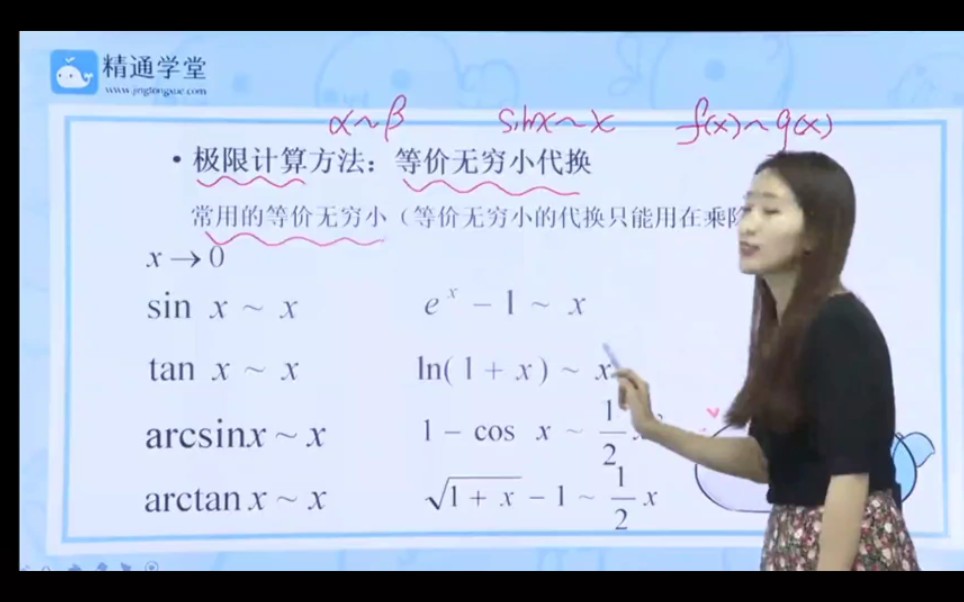 精通学堂
www.jingtongxue.com
α~β sinx~x f(x)~g(x)
• 极限计算方法：等价无穷小代换
常用的等价无穷小（等价无穷小的代换只能用在乘除
x → 0
sin x ~ x e^x − 1 ~ x
tan x ~ x ln( 1 + x ) ~ x
arcsinx ~ x 1 − cos x ~ 1/2 x²
arctan x ~ x √(1 + x) − 1 ~ 1/2 x